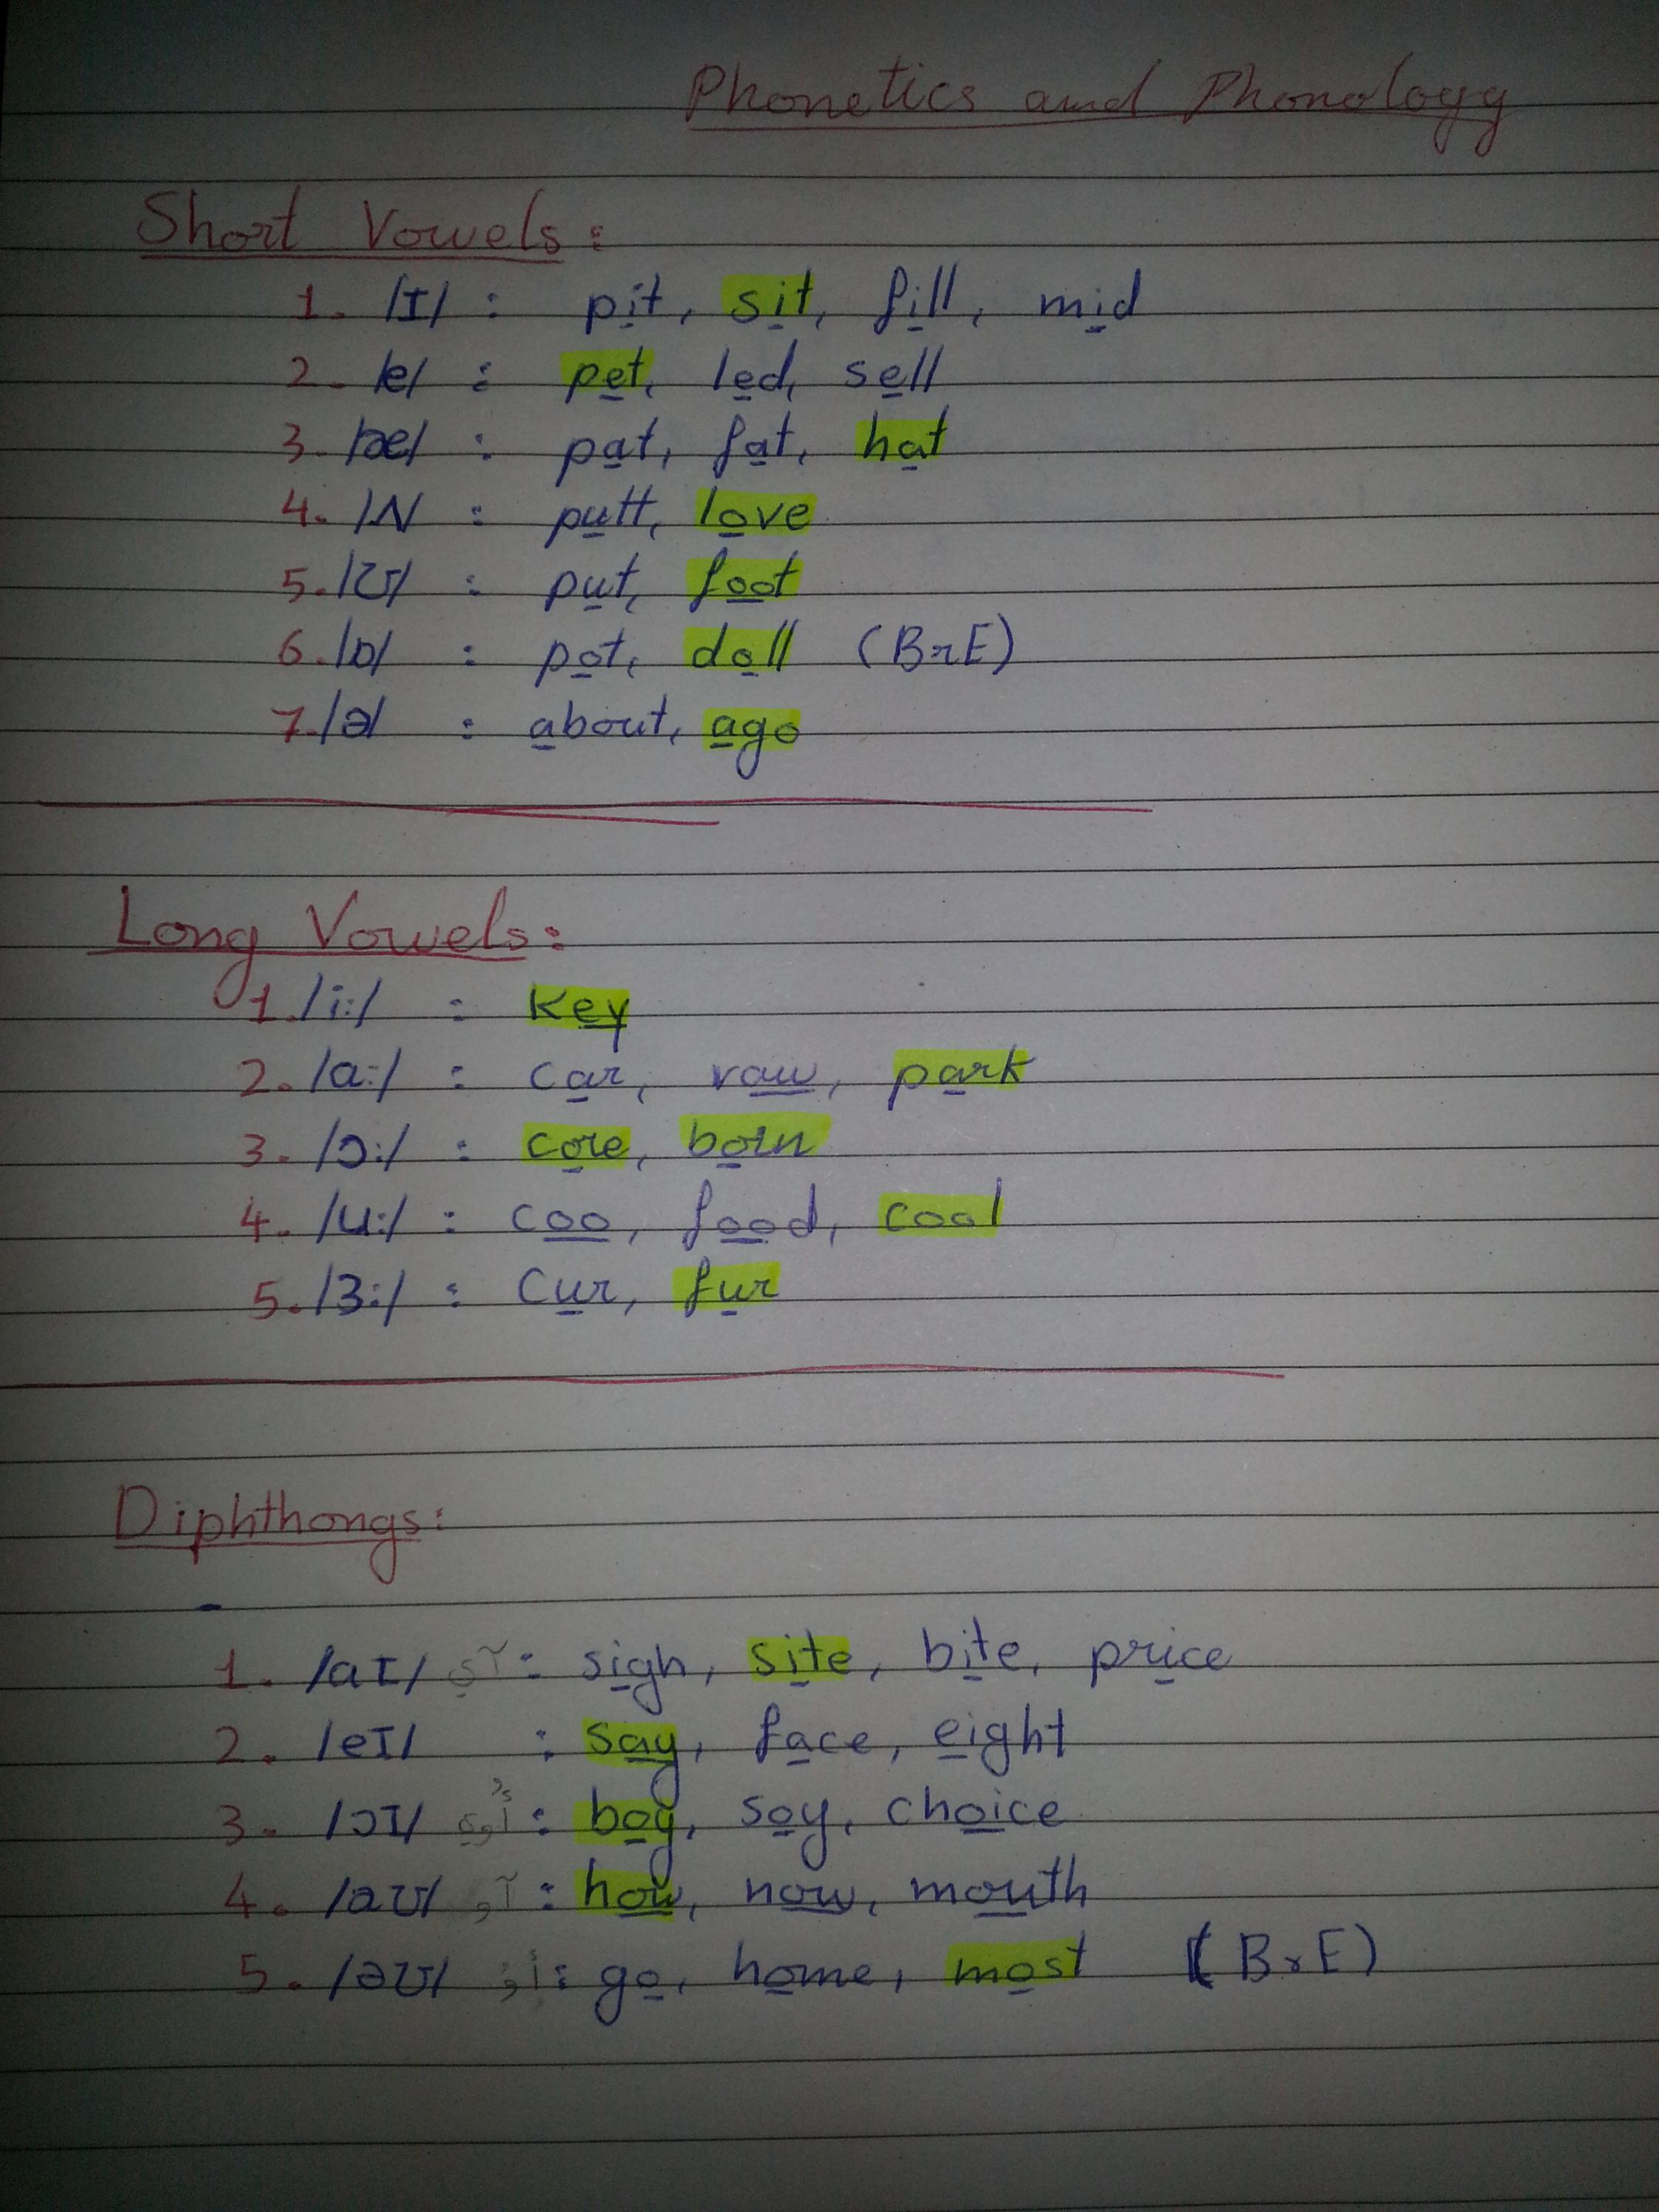 Phonetics and Phonology
Short Vowels:
1. /ɪ/ : pit, sit, fill, mid
2. /e/ : pet, led, sell
3. /æ/ : pat, fat, hat
4. /ʌ/ : putt, love
5. /ʊ/ : put, foot
6. /ɒ/ : pot, doll (BrE)
7. /ə/ : about, ago
Long Vowels:
1. /i:/ : key
2. /a:/ : car, raw, park
3. /ɔ:/ : core, born
4. /u:/ : coo, food, cool
5. /ɜ:/ : cur, fur
Diphthongs:
-
1. /aɪ/ آي : sigh, site, bite, price
2. /eɪ/ : say, face, eight
3. /ɔɪ/ : boy, soy, choice
4. /aʊ/ آو : how, now, mouth
5. /əʊ/ أوْ : go, home, most (BrE)